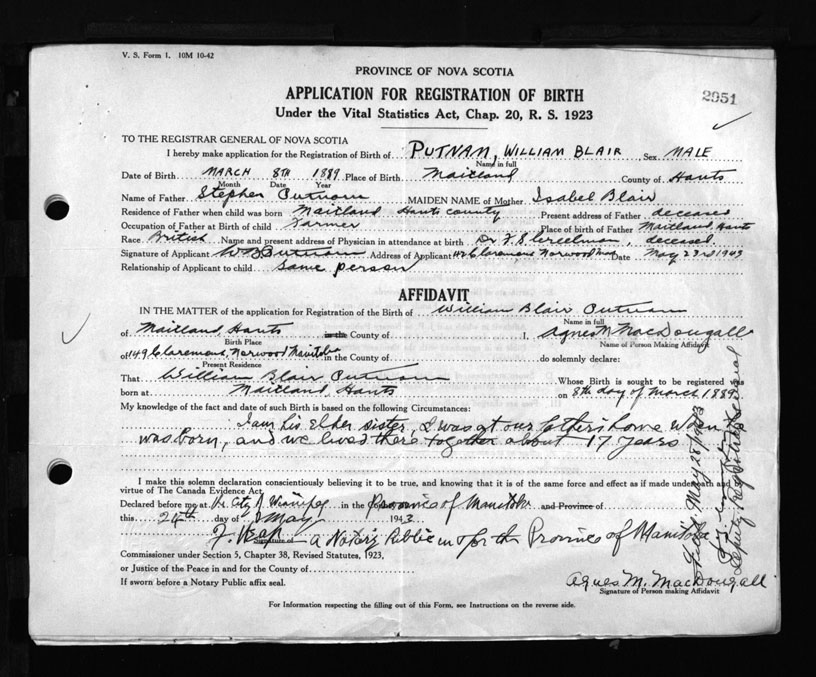 V. S. Form 1. 10M 10-42
PROVINCE OF NOVA SCOTIA
APPLICATION FOR REGISTRATION OF BIRTH
2951
Under the Vital Statistics Act, Chap. 20, R. S. 1923
TO THE REGISTRAR GENERAL OF NOVA SCOTIA
I hereby make application for the Registration of Birth of PUTNAM, WILLIAM BLAIR Sex MALE
Name in full
Date of Birth MARCH 8TH 1889 Place of Birth Maitland County of Hants
Month Date Year
Name of Father Stephen Putnam MAIDEN NAME of Mother Isabel Blair
Residence of Father when child was born Maitland Hants County Present address of Father deceased
Occupation of Father at Birth of child Farmer Place of birth of Father Maitland, Hants
Race British Name and present address of Physician in attendance at birth Dr F. S. Creelman, deceased.
Signature of Applicant W B Putnam Address of Applicant 149 Claremont Norwood Man Date May 23rd 1943
Relationship of Applicant to child same person
AFFIDAVIT
IN THE MATTER of the application for Registration of the Birth of William Blair Putnam
Name in full
of Maitland, Hants in the County of I, Agnes M. MacDougall
Birth Place Name of Person Making Affidavit
of 149 Claremont, Norwood Manitoba in the County of do solemnly declare:
Present Residence
That William Blair Putnam Whose Birth is sought to be registered was
born at Maitland, Hants on 8th day of March 1889
My knowledge of the fact and date of such Birth is based on the following Circumstances:
I am his elder sister, I was at our father's home when he
was born, and we lived there together about 17 years
I make this solemn declaration conscientiously believing it to be true, and knowing that it is of the same force and effect as if made under oath and
virtue of The Canada Evidence Act.
Declared before me at the City of Winnipeg in the Province of Manitoba and Province of
this 24th day of May 1943
A Notary Public in & for the Province of Manitoba
Signature of
Commissioner under Section 5, Chapter 38, Revised Statutes, 1923,
or Justice of the Peace in and for the County of
If sworn before a Notary Public affix seal.
Agnes M. MacDougall
Signature of Person making Affidavit
For Information respecting the filling out of this Form, see Instructions on the reverse side.
Filed May 28/1943
Deputy Registrar General